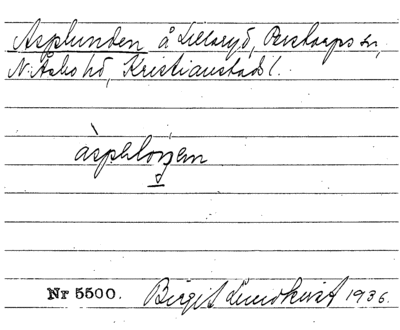 Asplunden å Lillaryd, Perstorps sn,
N. Åsbo hd, Kristianstads l.
àspelonjen
Nr 5500. Birgit Lundkvist 1936.